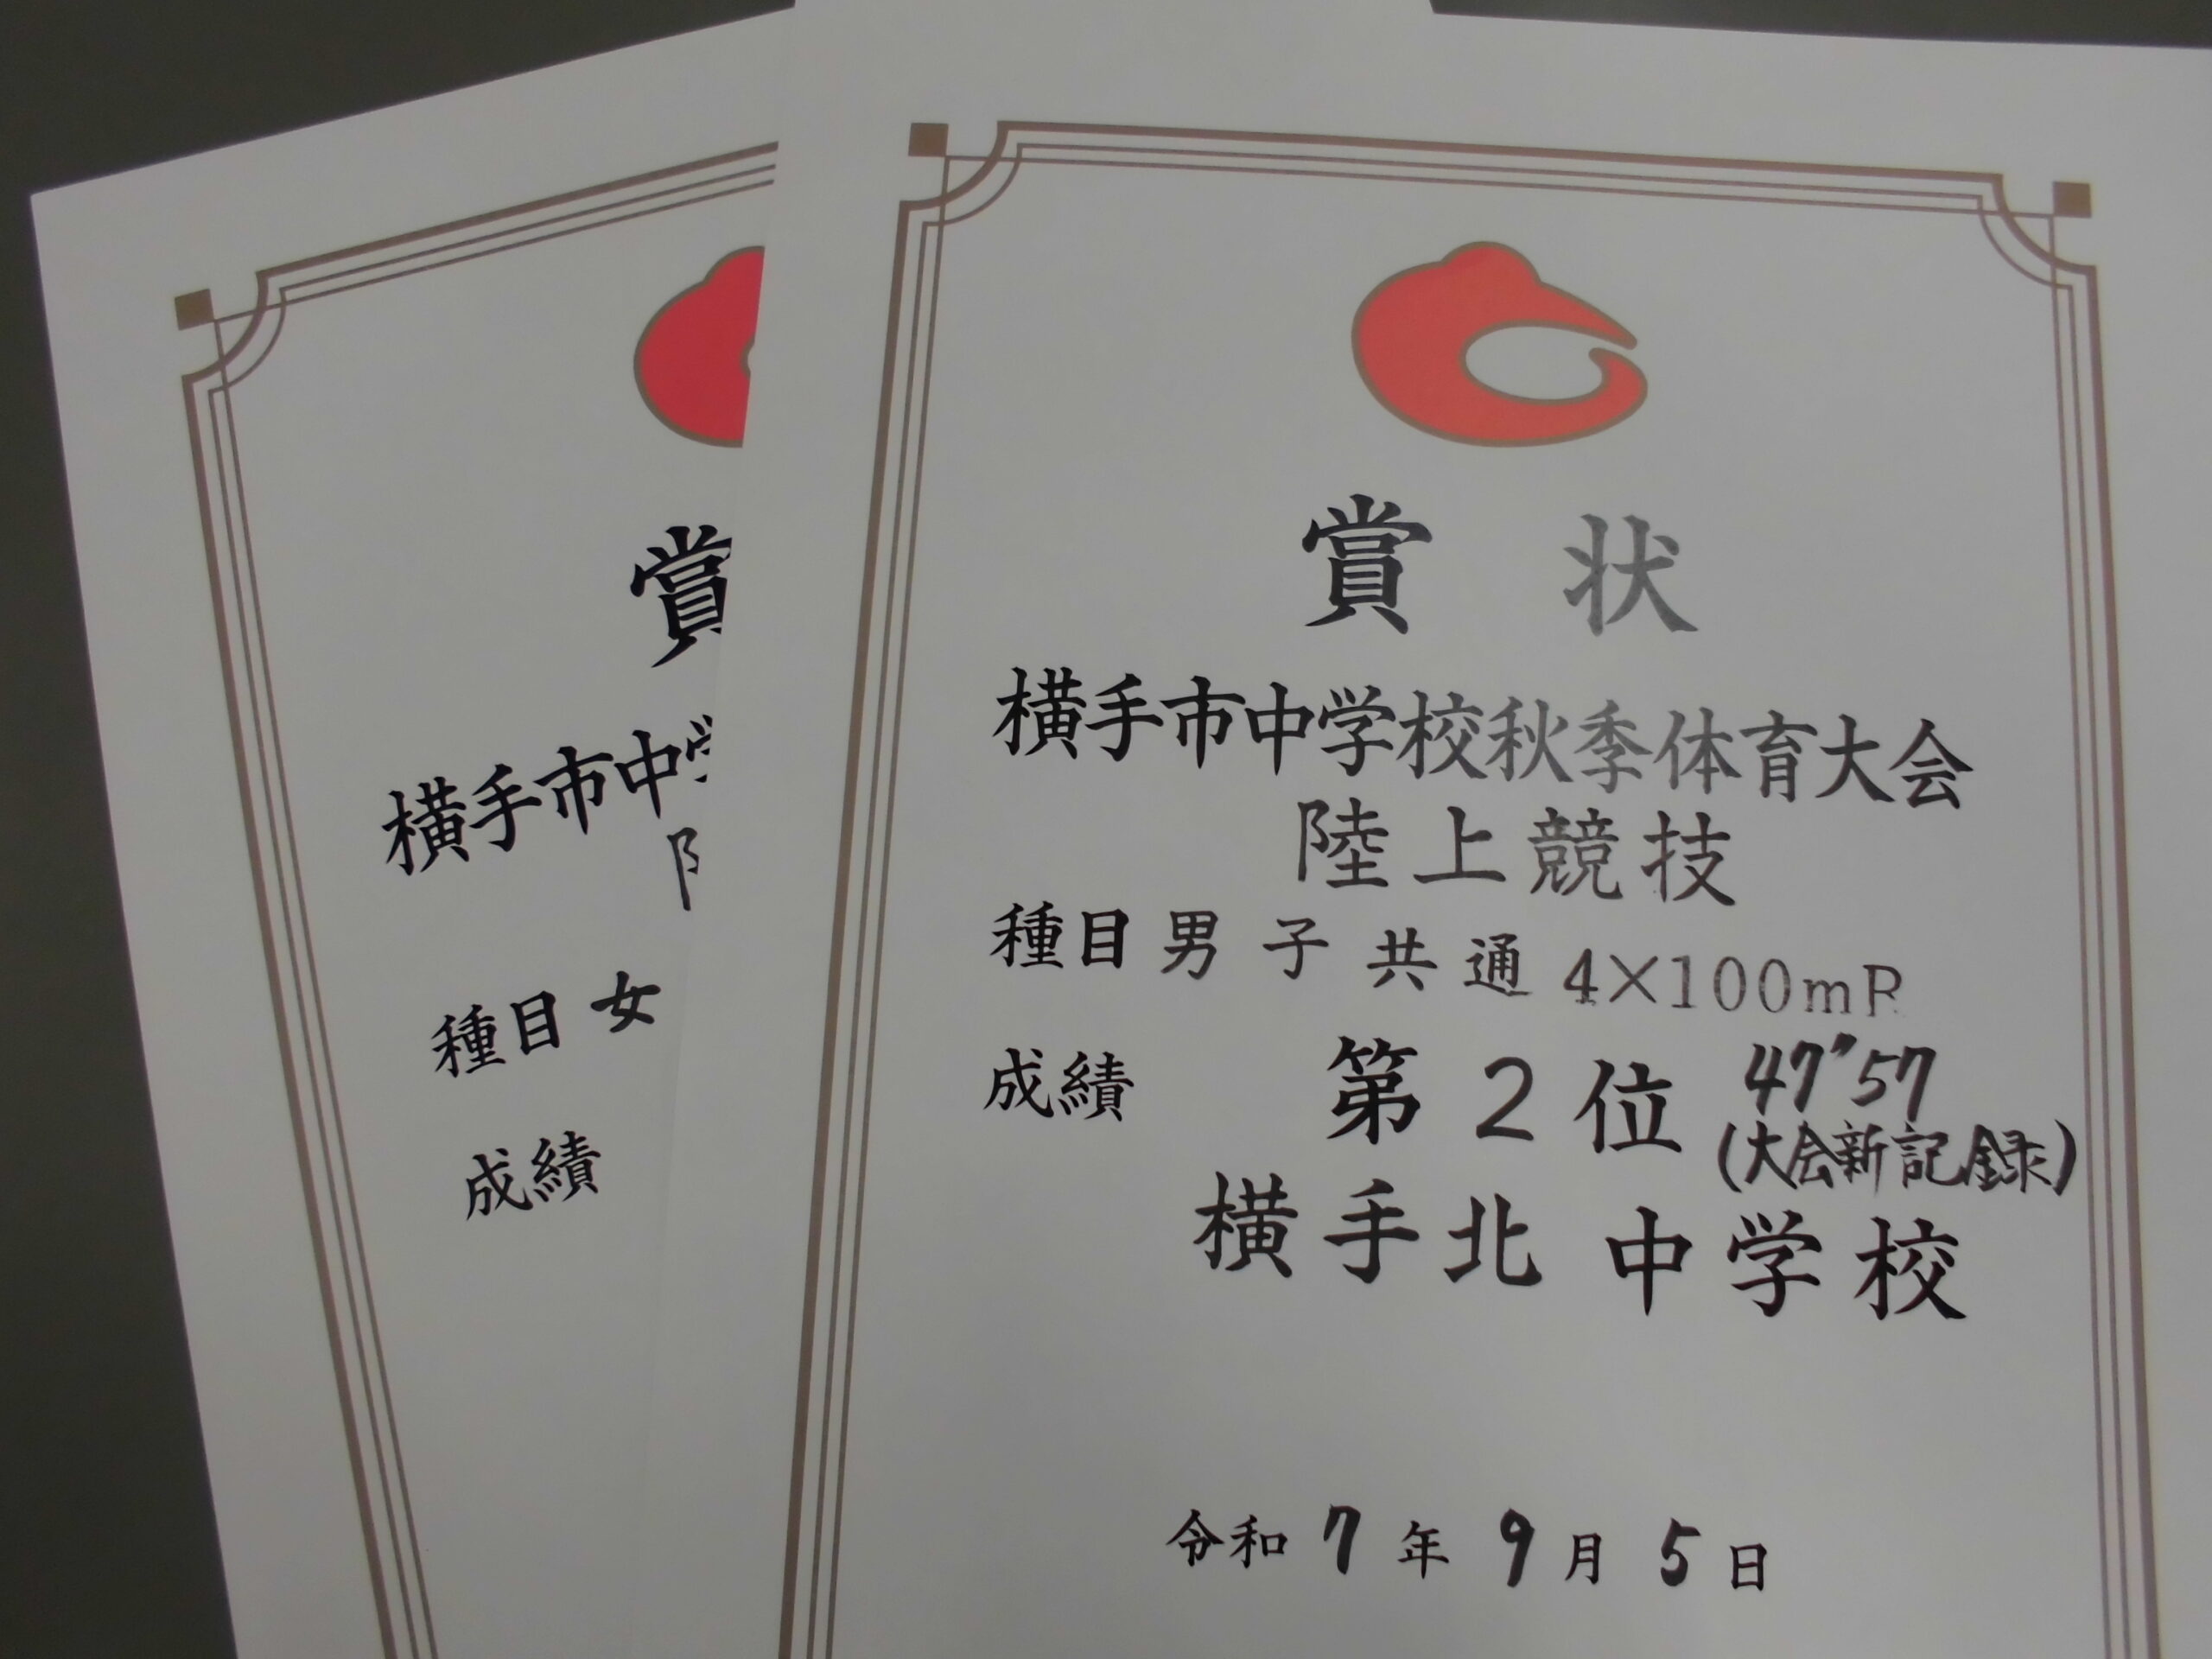 賞
横手市中学
種目 女
成績
賞 状
横手市中学校秋季体育大会
陸上競技
種目 男 子 共 通 4×100mR
成績 第 2 位 47"57
(大会新記録)
横手北 中学校
令和 7 年 9 月 5 日